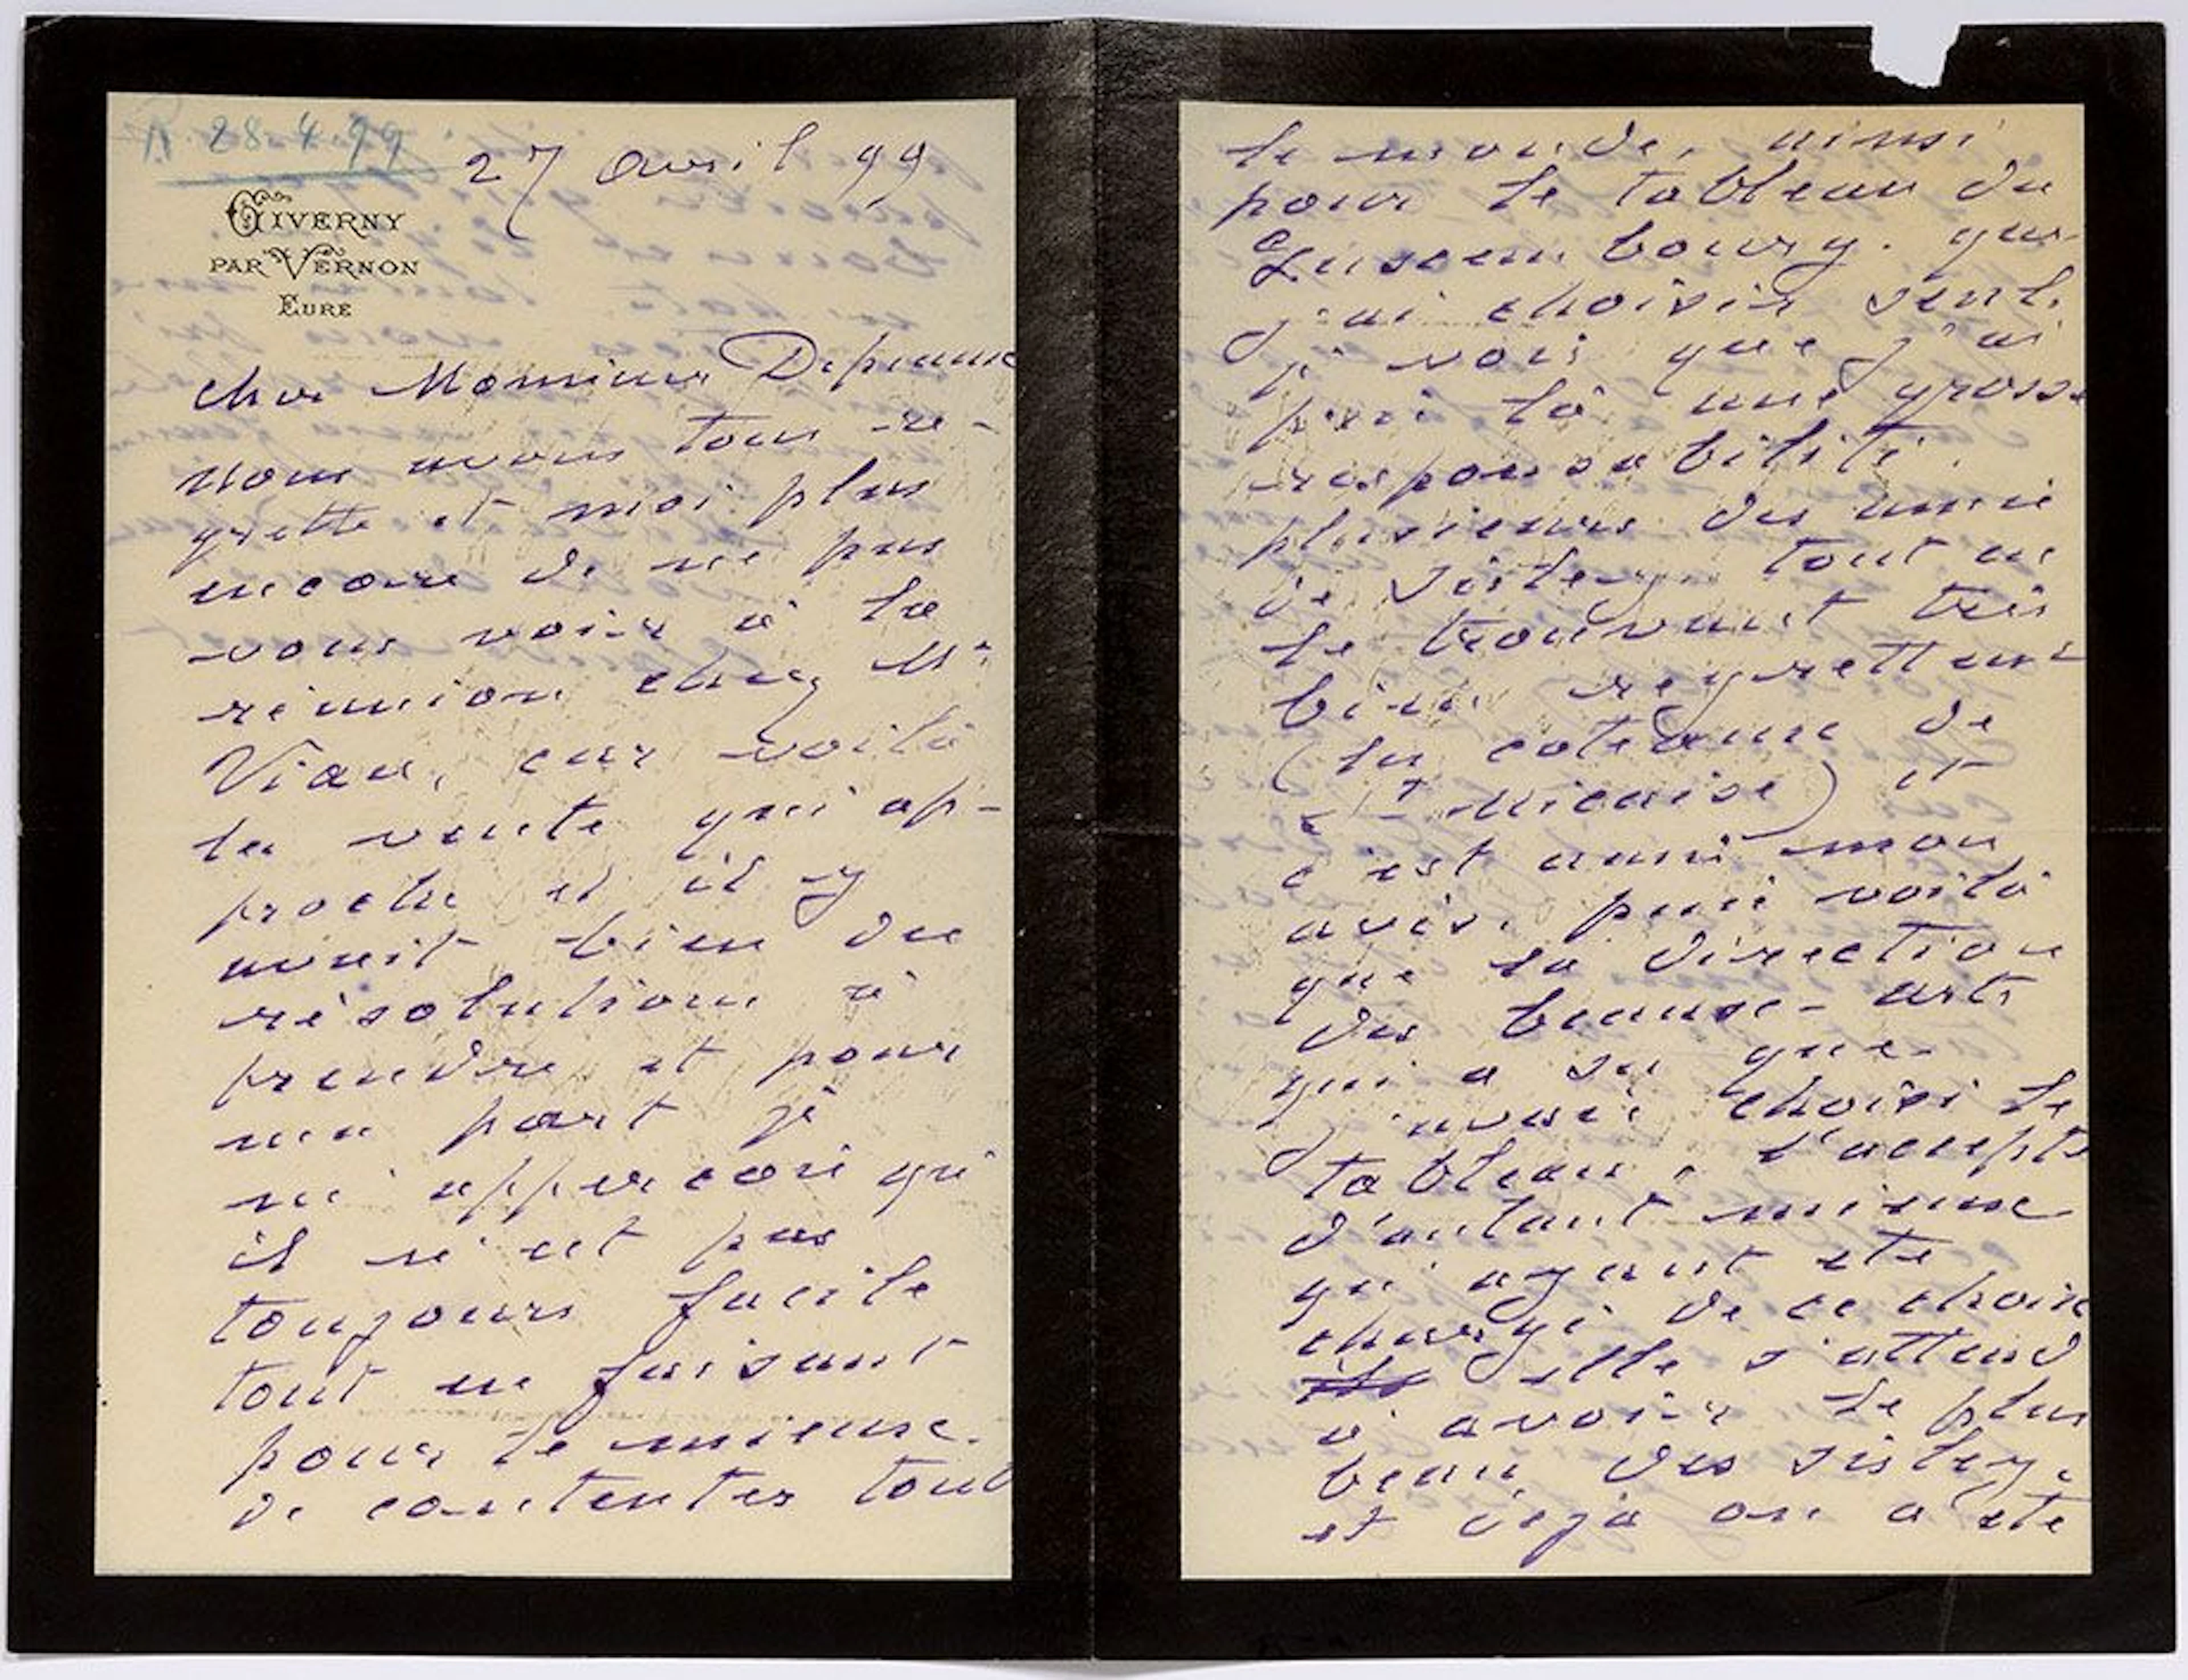 R. 28.4.99
27 avril 99
GIVERNY
PAR VERNON
EURE
cher Monsieur Depeaux
nous avons tous re-
gretté et moi plus
encore de ne pas
vous voir à la
réunion chez Mr
Viau, car voilà
la vente qui ap-
proche et il y
avait bien des
résolutions à
prendre et pour
ma part je
m'apperçois qu'
il n'est pas
toujours facile
tout en faisant
pour le mieux.
de contenter tout
le monde, ainsi
pour le tableau du
Luxembourg. que
j'ai choisir seul.
je vois que j'ai
pris là une grosse
responsabilité.
plusieurs des amis
de Sisley tout en
le trouvant très
bien regrettent
(la
) et
c'est aussi mon
avis. puis voilà
que la direction
des beaux-arts
qui a su que
j'avais choisi le
tableau, l'accepte
d'autant mieux
qu'ayant été
chargé de ce choix
elle s'attend
à avoir le plus
beau des Sisley.
et déjà on a été